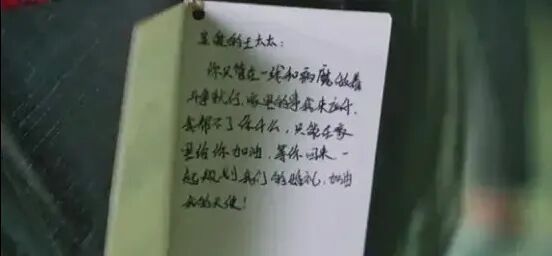 亲爱的王太太：
你只管在一线和病魔做着
斗争就行，家里的事我来应付，
我帮不了你什么，只能在家
里给你加油，等你回来一
起规划我们的婚礼，加油
我的天使！